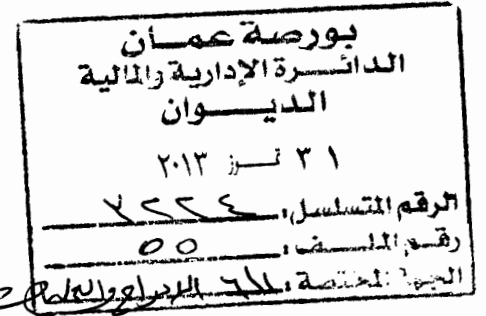 بورصة عمان
الدائرة الإدارية والمالية
الديوان
٣١ تموز ٢٠١٣
الرقم المتسلسل:
رقم الملف: ٥٥
الجهة المختصة: الإدراج